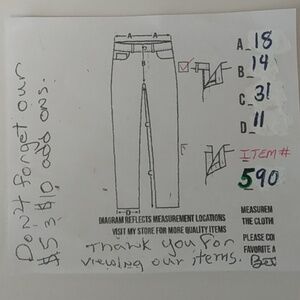 Don't forget our
$5 & $10 add ons.
A
A
B
C
D
A_18
B_14
C_31
D_11
ITEM#
590
DIAGRAM REFLECTS MEASUREMENT LOCATIONS
VISIT MY STORE FOR MORE QUALITY ITEMS
Thank you for
viewing our items.
MEASUREM
THE CLOTHI
PLEASE CO
FAVORITE A